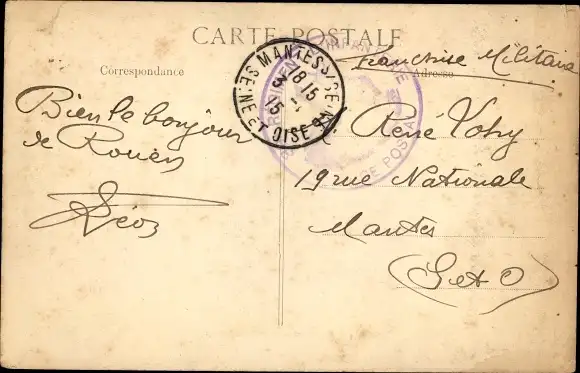 CARTE POSTALE
Correspondance
Adresse
Franchise Militaire
MANTES S/SEINE
18 15
15
SEINE ET OISE
INFANTERIE
POSTAL
Bien le bonjour
de Rouen
Léon
René Votry
19 rue Nationale
Mantes
(S et O)